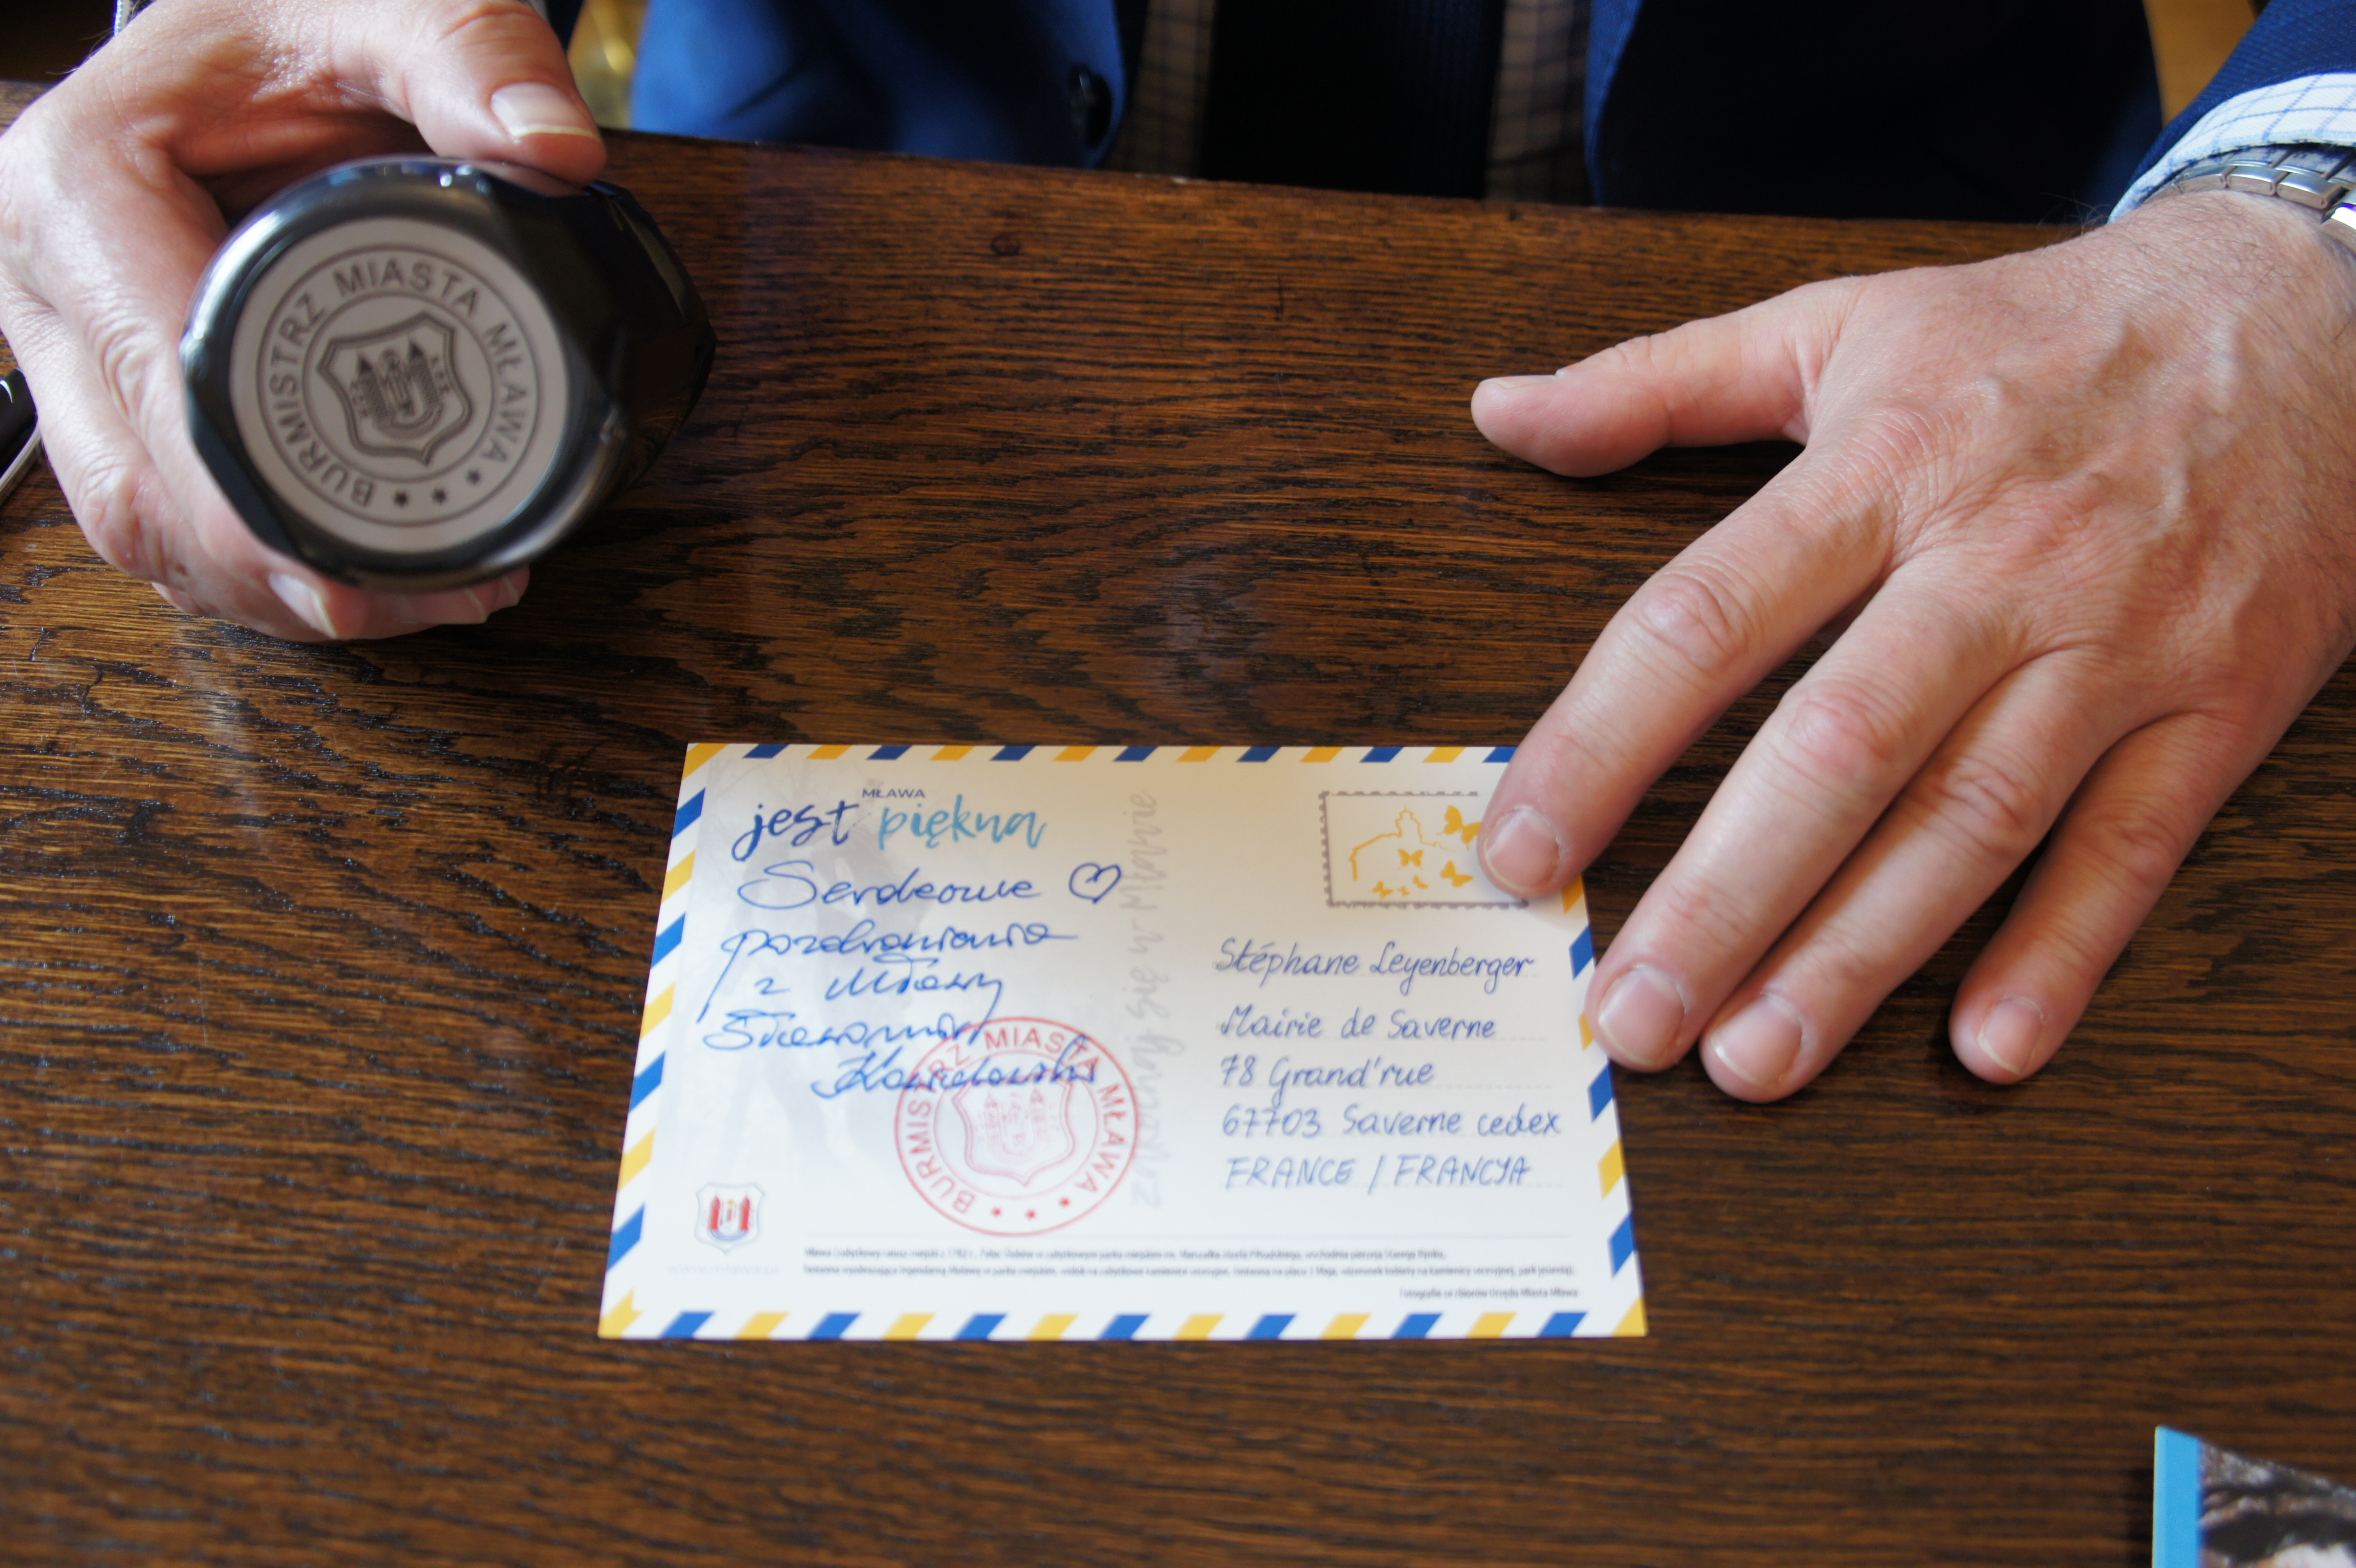 BURMISTRZ MIASTA MŁAWA
MŁAWA
jest piękna
Serdeczne
pozdrowienia
z Mławy
Sławomir
Kowalewski
BURMISTRZ MIASTA MŁAWA
zakochaj się w Mławie
Stéphane Leyenberger
Mairie de Saverne
78 Grand'rue
67703 Saverne cedex
FRANCE / FRANCJA
www.mlawa.pl
Fotografie ze zbiorów Urzędu Miasta Mława